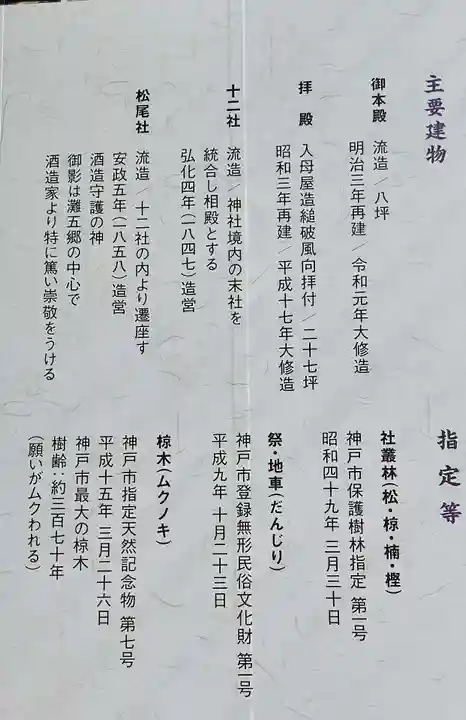 主要建物
御本殿 流造／八坪
明治三年再建／令和元年大修造
拝殿 入母屋造縋破風向拝付／二十七坪
昭和三年再建／平成十七年大修造
十二社 流造／神社境内の末社を
統合し相殿とする
弘化四年(一八四七)造営
松尾社 流造／十二社の内より遷座す
安政五年(一八五八)造営
酒造守護の神
御影は灘五郷の中心で
酒造家より特に篤い崇敬をうける
指定等
社叢林(松・椋・楠・樫)
神戸市保護樹林指定 第一号
昭和四十九年 三月三十日
祭・地車(だんじり)
神戸市登録無形民俗文化財 第一号
平成九年 十月二十三日
椋木(ムクノキ)
神戸市指定天然記念物 第七号
平成十五年 三月二十六日
神戸市最大の椋木
樹齢:約三百七十年
(願いがムクわれる)